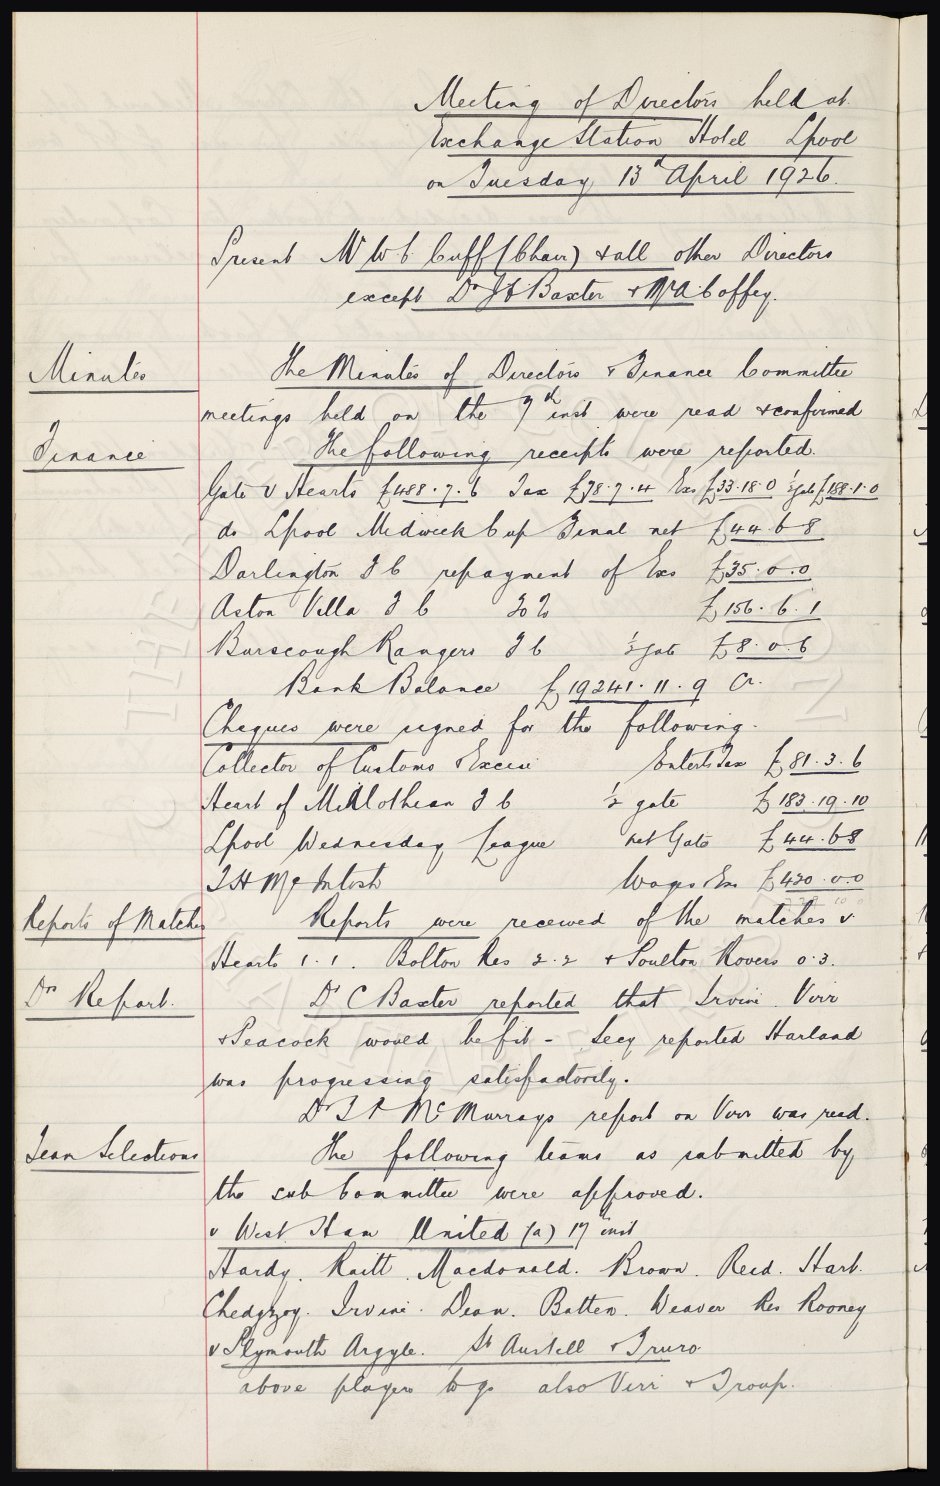 Meeting of Directors held at
Exchange Station Hotel Lpool
on Tuesday, 13th April 1926.
Present Mr W C Cuff (Chair) & all other Directors
except Dr J C Baxter & Mr A Coffey.
Minutes
The Minutes of Directors & Finance Committee
meetings held on the 7th inst were read & confirmed
Finance
The following receipts were reported.
Gate v Hearts £488.7.6 Tax £78.7.4 Exs £33.18.0 ½ gate £188.1.0
do Lpool Midweek Cup Final net £44.6.8
Darlington F C repayment of Exs £35.0.0
Aston Villa F C £156.6.1
Burscough Rangers F C ½ gate £8.0.6
Bank Balance £19241.11.9 Cr.
Cheques were signed for the following.
Collector of Customs & Excise Enterts Tax £81.3.6
Heart of Midlothian F C ½ gate £183.19.10
Lpool Wednesday League net Gate £44.6.8
T H McIntosh Wages & Exs £420.0.0
Reports of Matches
Reports were received of the matches v
Hearts 1.1. Bolton Res 2.2 & Poulton Rovers 0.3.
Drs Report.
Dr C Baxter reported that Irvine. Virr
& Peacock would be fit - Secy reported Harland
was progressing satisfactorily.
Dr McMurrays report on Virr was read.
Team Selections
The following teams as submitted by
the sub Committee were approved.
v West Ham United (a) 17th inst
Hardy. Raitt. Macdonald. Brown. Reid. Hart.
Chedgzoy. Irvine. Dean. Batten. Weaver Res Rooney
v Plymouth Argyle. St Austell & Truro.
above players to go also Virr & Troup.